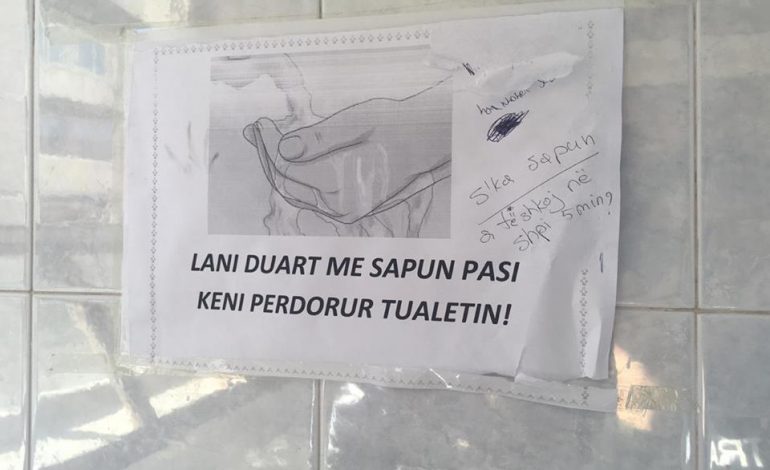 S'ka sapun
a të shkoj në
shpi 5 min?
LANI DUART ME SAPUN PASI
KENI PERDORUR TUALETIN!